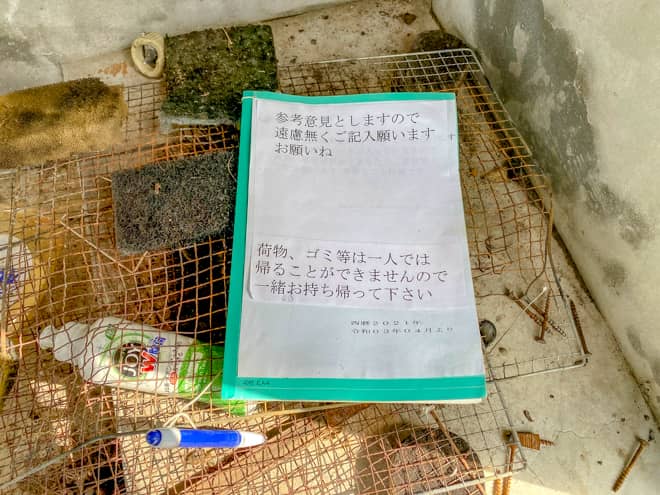 参考意見としますので
遠慮無くご記入願います
お願いね
荷物、ゴミ等は一人では
帰ることができませんので
一緒お持ち帰って下さい
西暦2021年
令和03年04月より
JOY
W